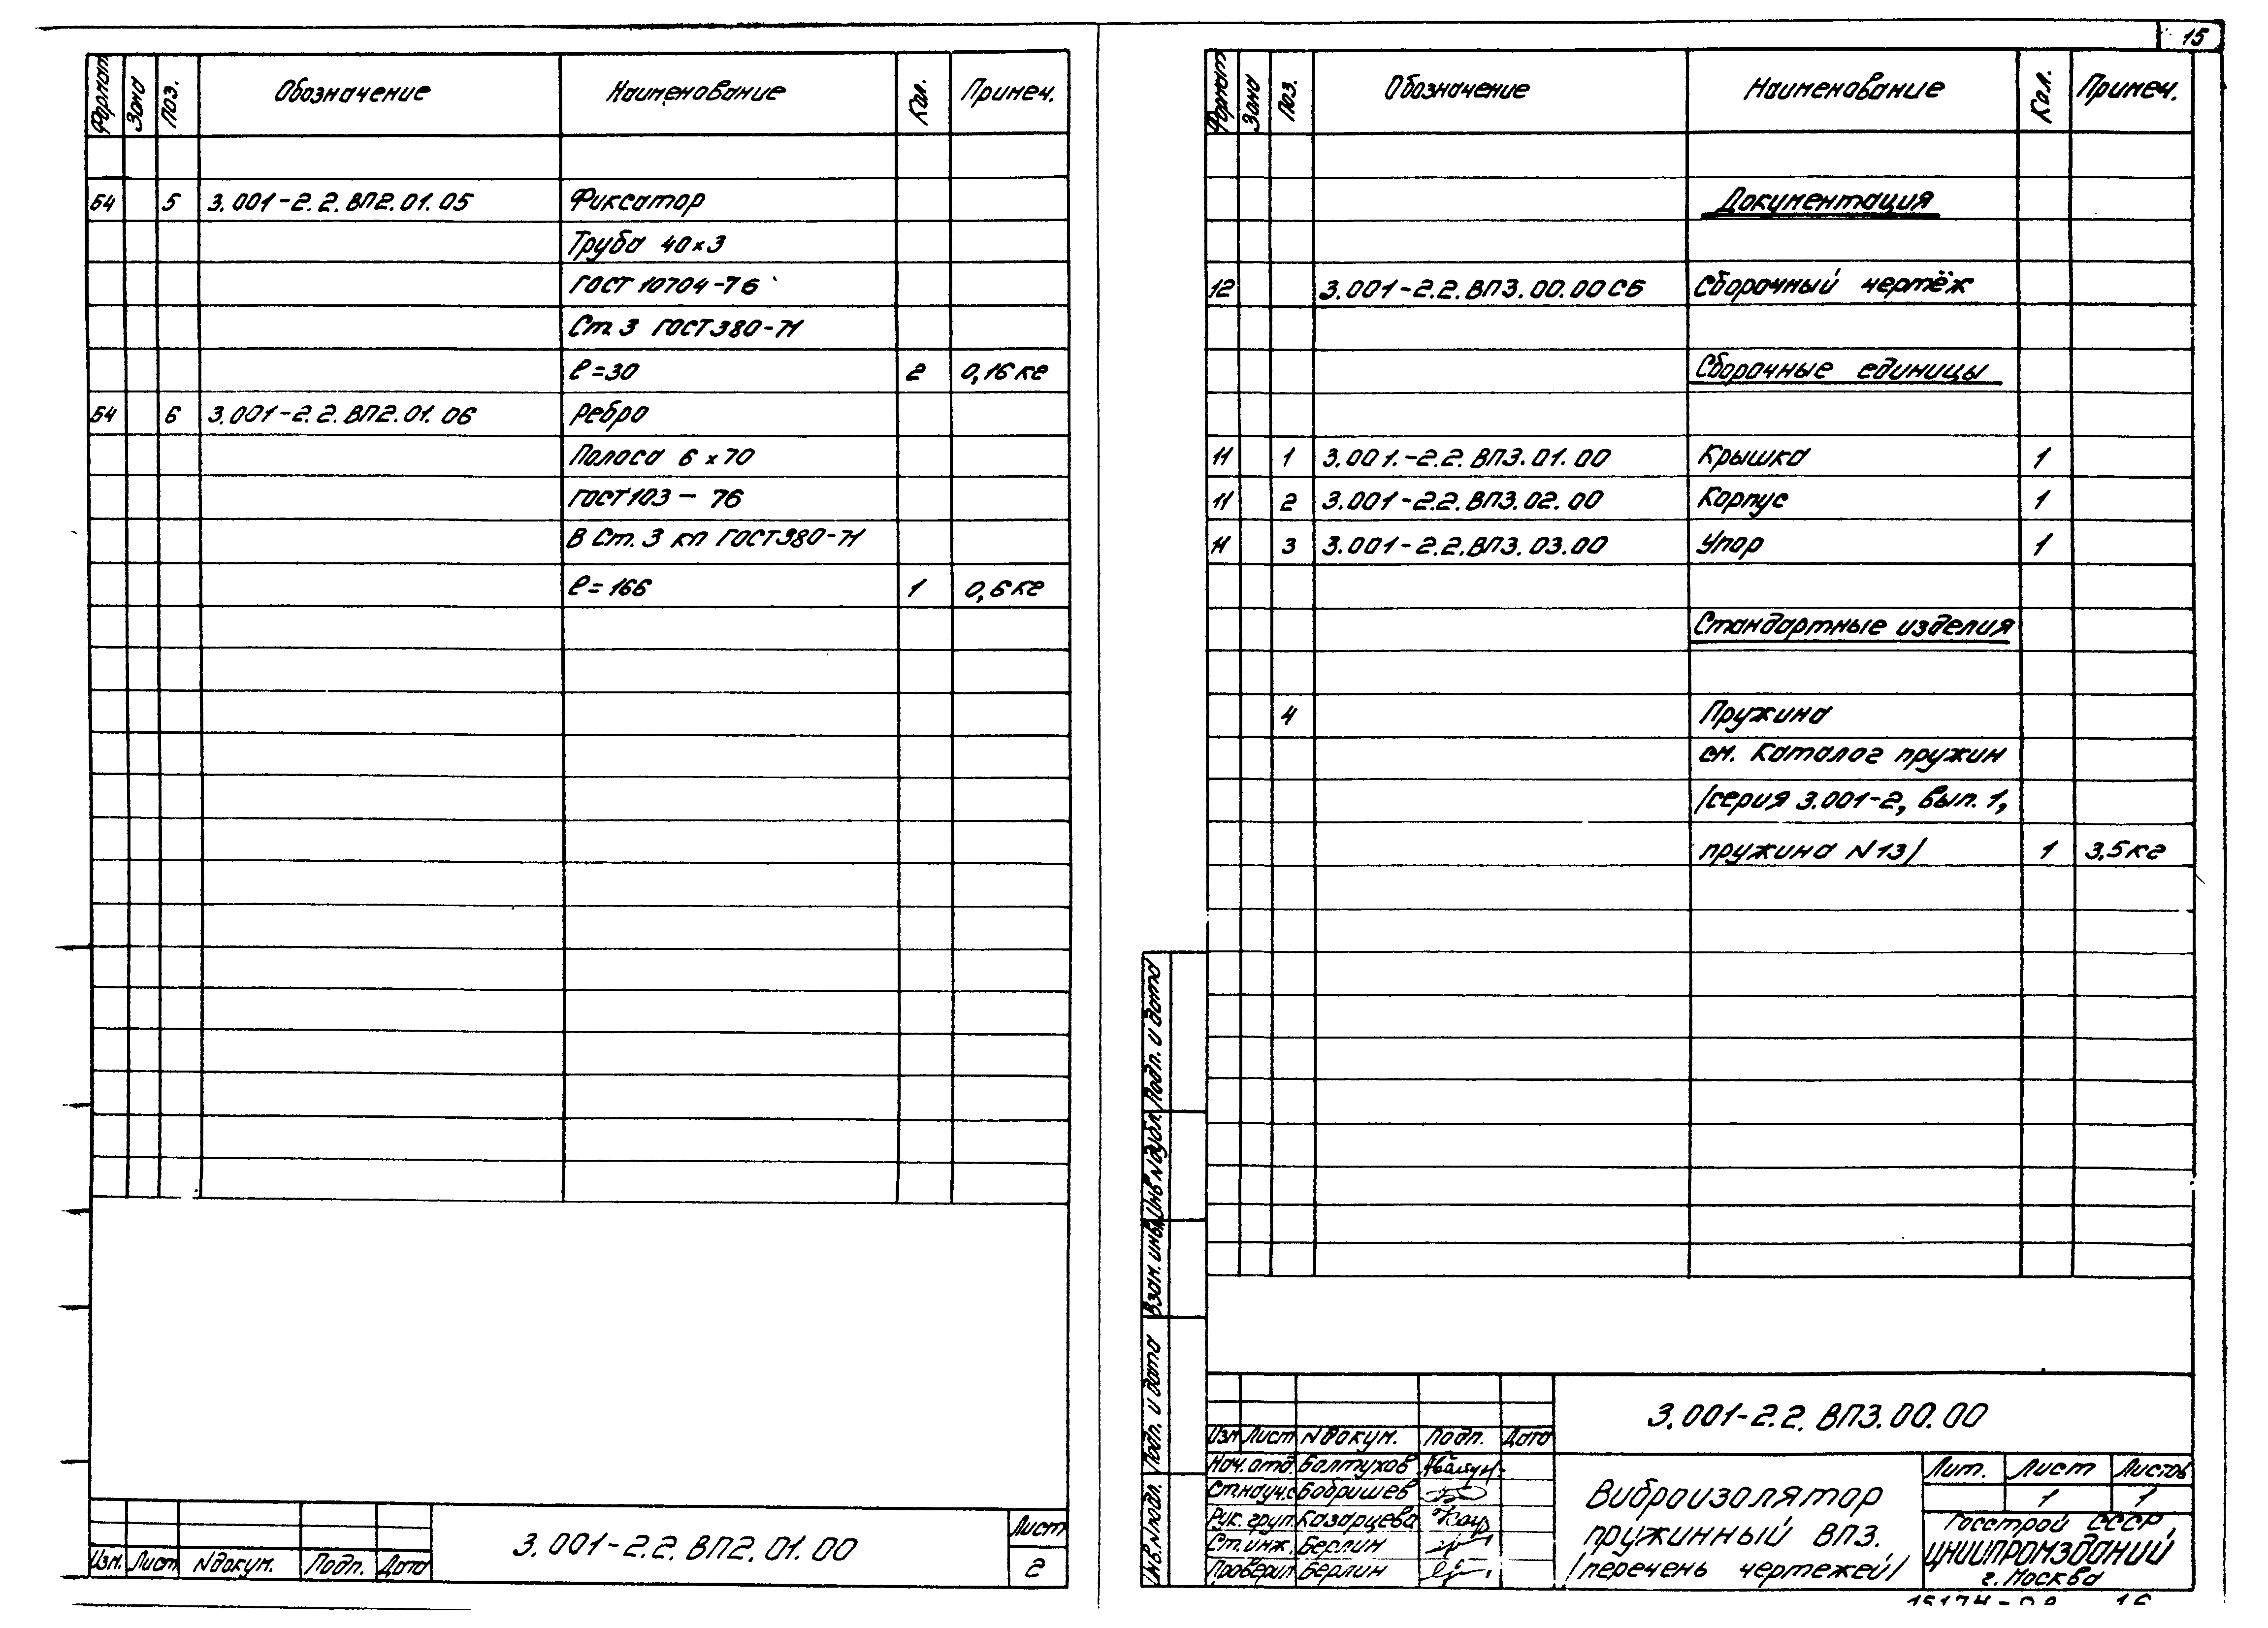 15
Формат Зона Поз. Обозначение Наименование Кол. Примеч.
Б4 5 3.001-2.2.ВП2.01.05 Фиксатор
Труба 40×3
ГОСТ 10704-76
Ст. 3 ГОСТ 380-71
ℓ=30 2 0,16 кг
Б4 6 3.001-2.2.ВП2.01.06 Ребро
Полоса 6×70
ГОСТ 103-76
В Ст. 3 кп ГОСТ 380-71
ℓ=166 1 0,6 кг
Изм. Лист N докум. Подп. Дата
3.001-2.2.ВП2.01.00
Лист
2
Формат Зона Поз. Обозначение Наименование Кол. Примеч.
Документация
12 3.001-2.2.ВП3.00.00 СБ Сборочный чертёж
Сборочные единицы
11 1 3.001.-2.2.ВП3.01.00 Крышка 1
11 2 3.001-2.2.ВП3.02.00 Корпус 1
11 3 3.001-2.2.ВП3.03.00 Упор 1
Стандартные изделия
4 Пружина
см. каталог пружин
/серия 3.001-2, вып. 1,
пружина N 13/ 1 3,5 кг
Подп. и дата
Инв N дубл.
Взам. инв N
Подп. и дата
Инв. N подл.
3.001-2.2.ВП3.00.00
Изм Лист N докум. Подп. Дата
Нач. отд. Болтухов
Ст. науч. с Бобришев
Рук. груп. Казарцева
Ст. инж. Берлин
Проверил Берлин
Виброизолятор
пружинный ВП3.
/перечень чертежей/
Лит. Лист Листов
1 1
Госстрой СССР,
ЦНИИПРОМЗДАНИЙ
г. Москва